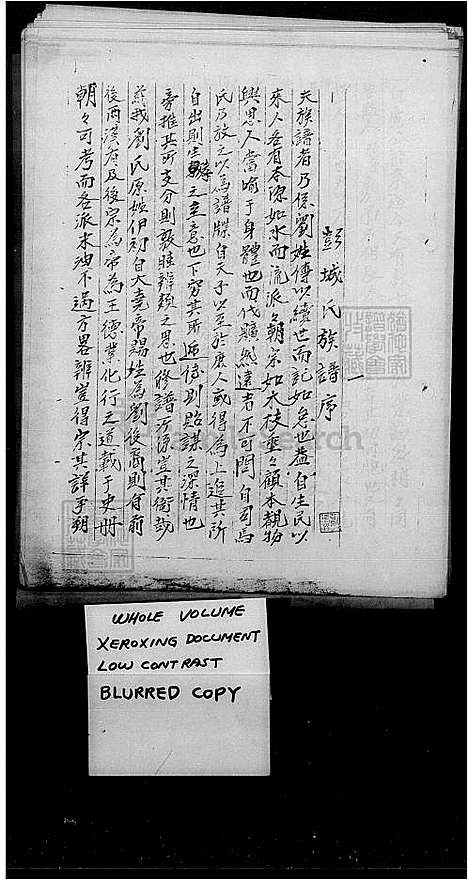 彭城氏族譜序
夫族譜者乃係劉姓傳以續世而記如忽也蓋自生民以
來人各有本源如水而流派々朝宗如木枝垂々顧本親物
興思人當喻于身體也而代曠然遠者不可問自司馬
氏乃放之以為譜牒自天子以至於庶人或得為上追其所
自出則生之主意也下窮其所逓後則貽謀之深情也
旁推其所支分則敦睦辨類之恩也修譜所係豈其微哉
茲我劉氏原姓伊祁自大堯帝賜姓為劉後裔則有前
後西漢府及後宗為帝為王德業化行之道載于史冊
朝々可考而各派木油不過方畧辨豈得宗其詳乎朔
WHOLE VOLUME
XEROXING DOCUMENT
LOW CONTRAST
BLURRED COPY